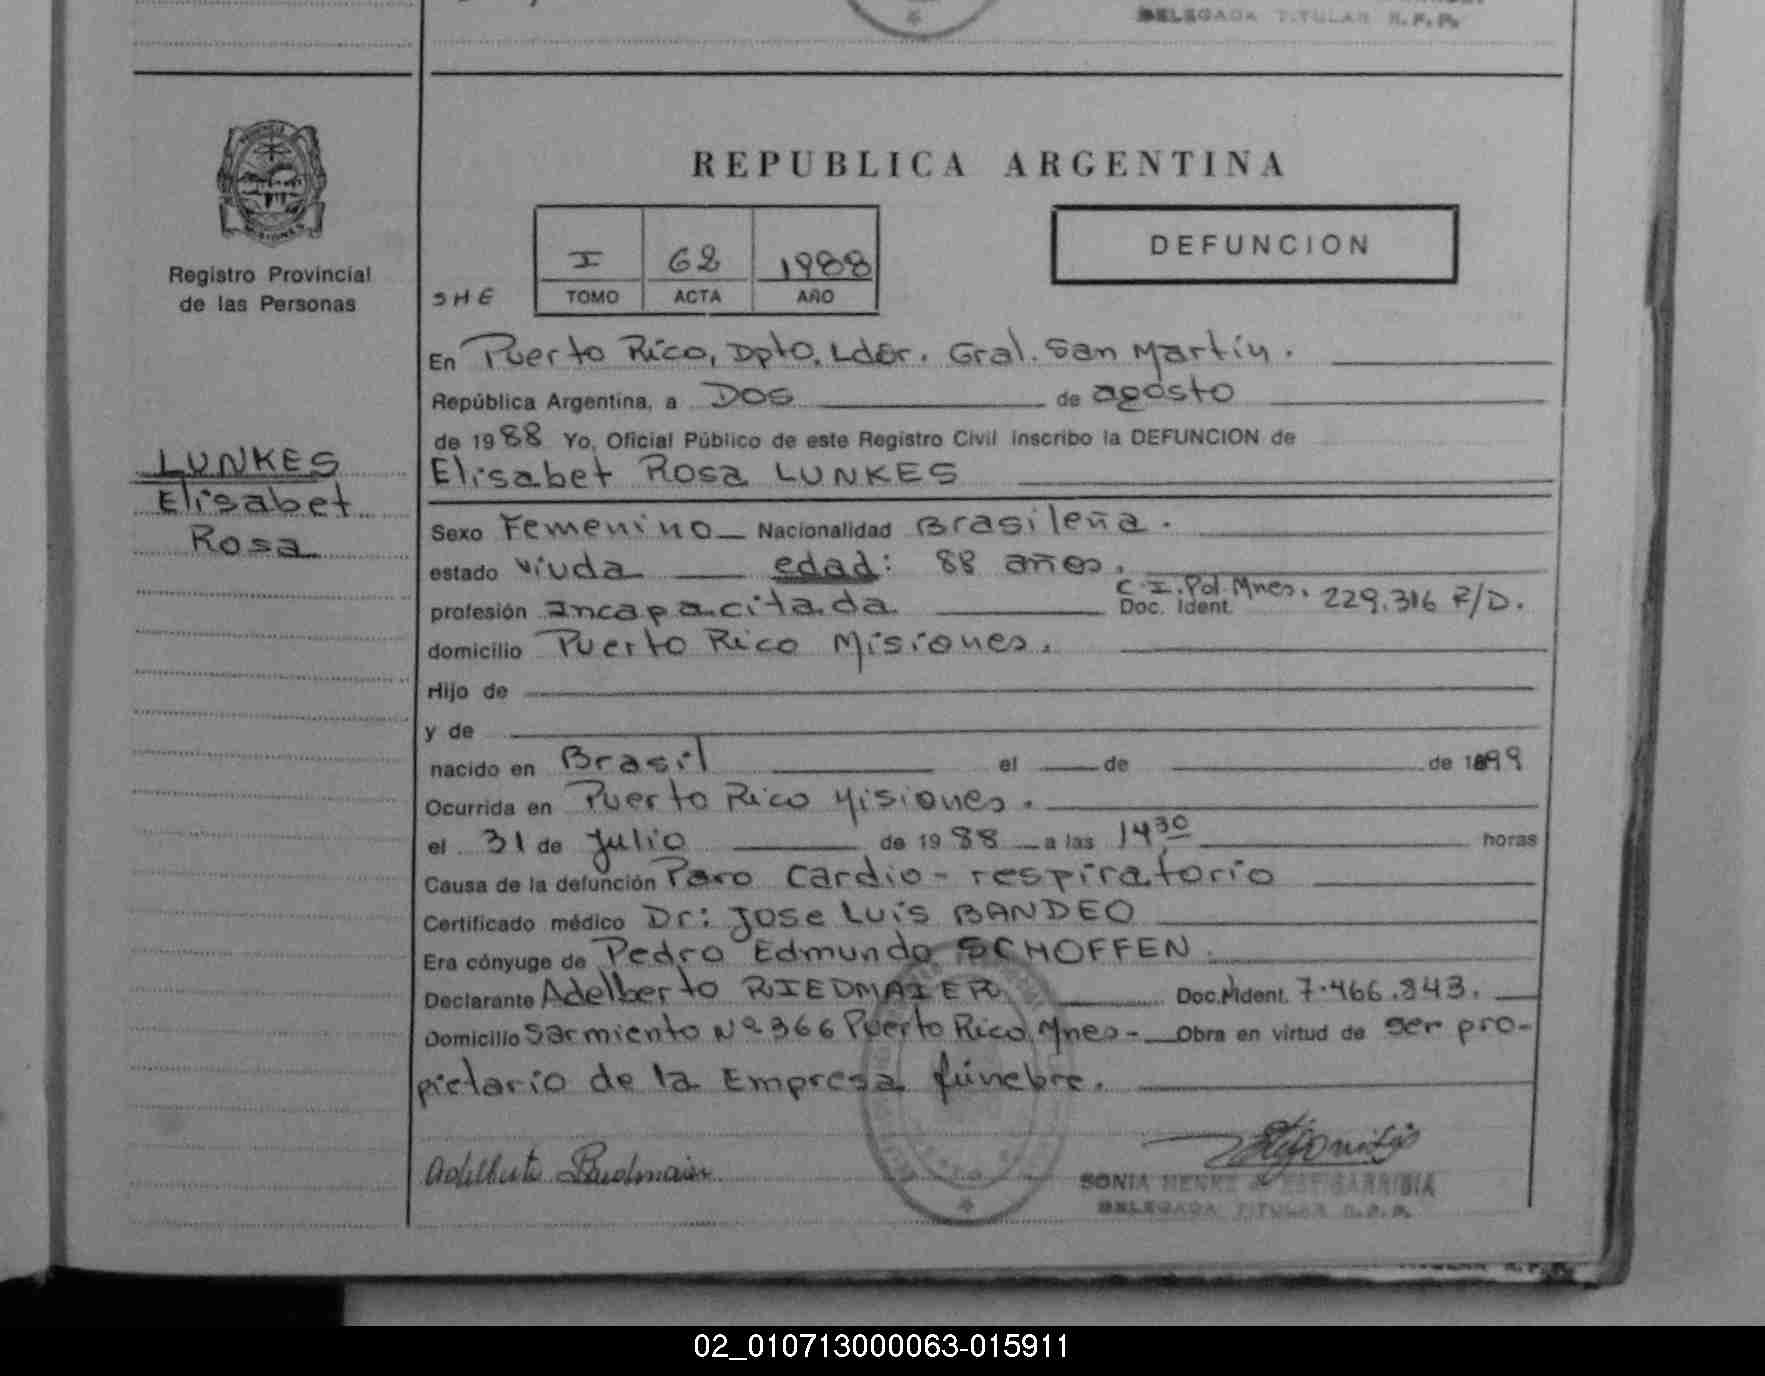 DELEGADA TITULAR R.P.P.
REPUBLICA ARGENTINA
Registro Provincial
de las Personas
I 62 1988
TOMO ACTA AÑO
DEFUNCION
SHE
En Puerto Rico, Dpto. Ldor. Gral. San Martín.
República Argentina, a DOS de agosto
de 1988 Yo, Oficial Público de este Registro Civil inscribo la DEFUNCION de
LUNKES
Elisabet
Rosa
Elisabet Rosa LUNKES
Sexo Femenino Nacionalidad Brasileña.
estado viuda edad: 88 años.
profesión Incapacitada C.I.Pol.Mnes. Doc. Ident. 229.316 F/D.
domicilio Puerto Rico Misiones.
Hijo de
y de
nacido en Brasil el de de 1899
Ocurrida en Puerto Rico Misiones.
el 31 de Julio de 1988 a las 14,30 horas
Causa de la defunción Paro Cardio-respiratorio
Certificado médico Dr: Jose Luis BANDEO
Era cónyuge de Pedro Edmundo SCHOFFEN.
Declarante Adelberto RIEDMAIER Doc. Ident. 7.466.343.
Domicilio Sarmiento Nº 366 Puerto Rico Mnes- Obra en virtud de ser pro-
pietario de la Empresa fúnebre.
SONIA HENKE de ESTIGARRIBIA
DELEGADA TITULAR R.P.P.
02_010713000063-015911